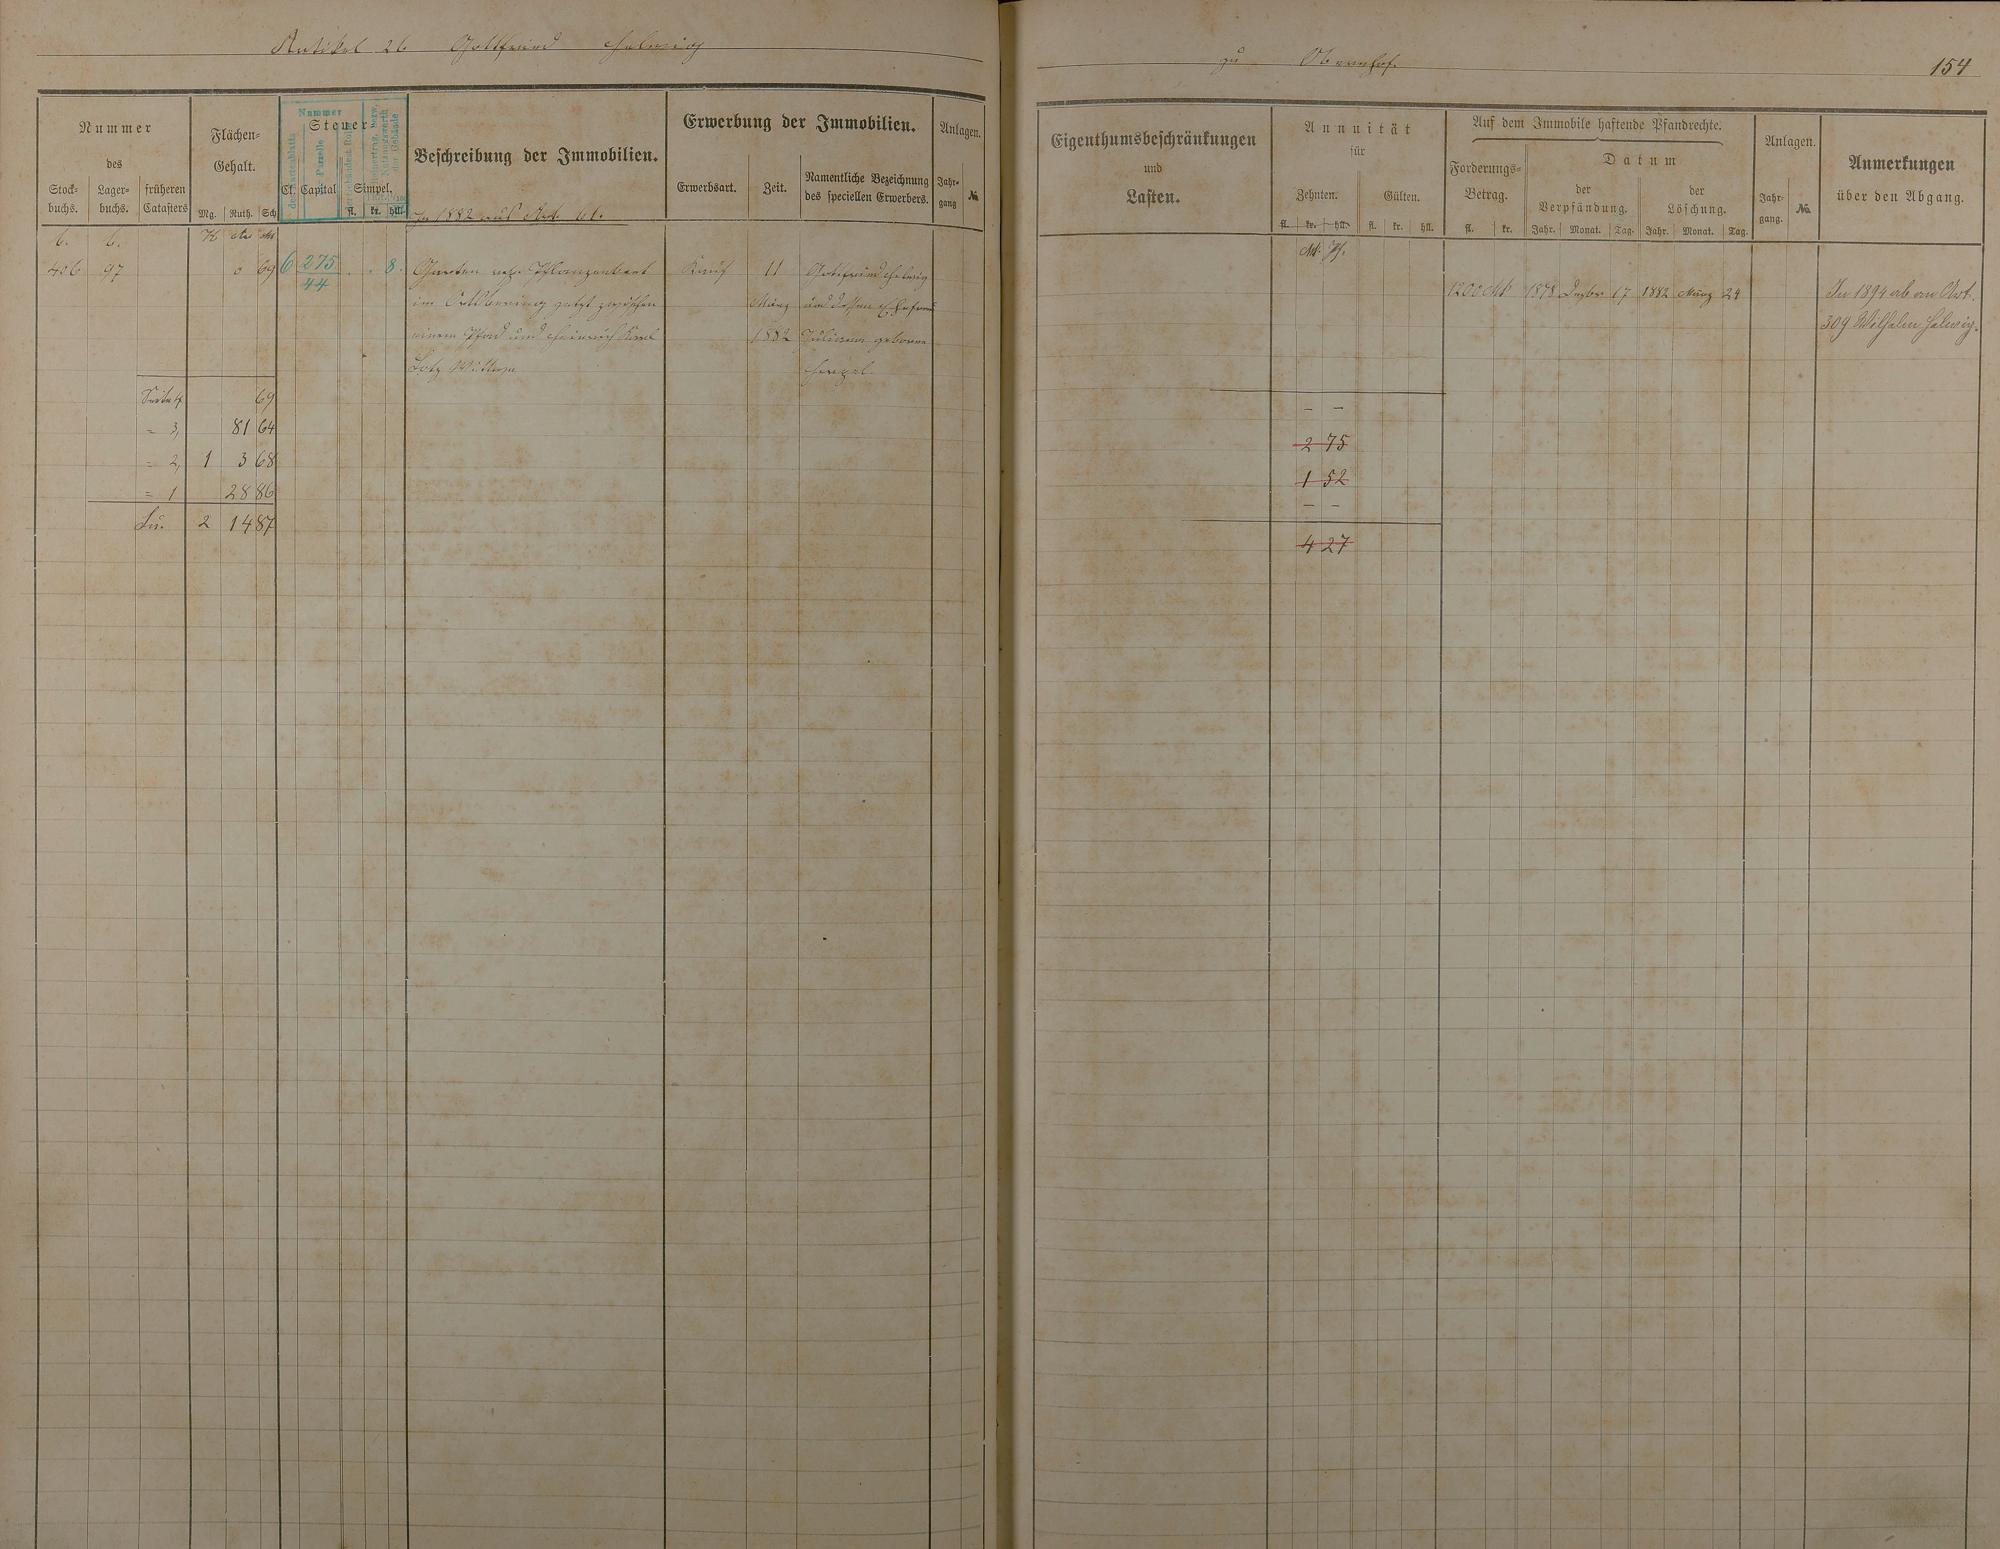 Artikel 26 Gottfried Helwig
zu Obernhof.
154
Nummer
des
Stock-
buchs.
Lager-
buchs.
früheren
Catasters
Flächen-
Gehalt.
Mg. Ruth. Sch
Steuer
Cl. Capital Simpel.
fl. kr. hll.
Nummer
des Kartenblatts
der Parzelle
Beschreibung der Immobilien.
Erwerbung der Immobilien.
Erwerbsart.
Zeit.
Namentliche Bezeichnung
des speciellen Erwerbers.
Anlagen.
Jahr-
gang
№
Eigenthumsbeschränkungen
und
Lasten.
Annuität
für
Zehnten.
Gülten.
fl. kr. hll. fl. kr. hll.
Auf dem Immobile haftende Pfandrechte.
Forderungs-
Betrag.
fl. kr.
Datum
der
Verpfändung.
der
Löschung.
Jahr. Monat. Tag. Jahr. Monat. Tag.
Anlagen.
Jahr-
gang.
№
Anmerkungen
über den Abgang.
In 1882 aus Art. 61.
b. b. H Ar
Mk Pf.
406 97 0 69 6 275/44 . . 8. Garten
Kauf 11 Gottfried Helwig
im Ortsbering jetzt zwischen
März und dessen Ehefrau
einem Pfad und Heinrich Karl
1882 Juliana geborne
Lotz Wittwe
1200 Mk 1878 Dezbr 17 1882 März 24
In 1894 ab an Art.
309 Wilhelm Helwig.
Seite 4 69
= 3, 81 64
= 2, 1 3 68
= 1 28 86
Su. 2 14 87
– –
2 75
1 52
– –
4 27